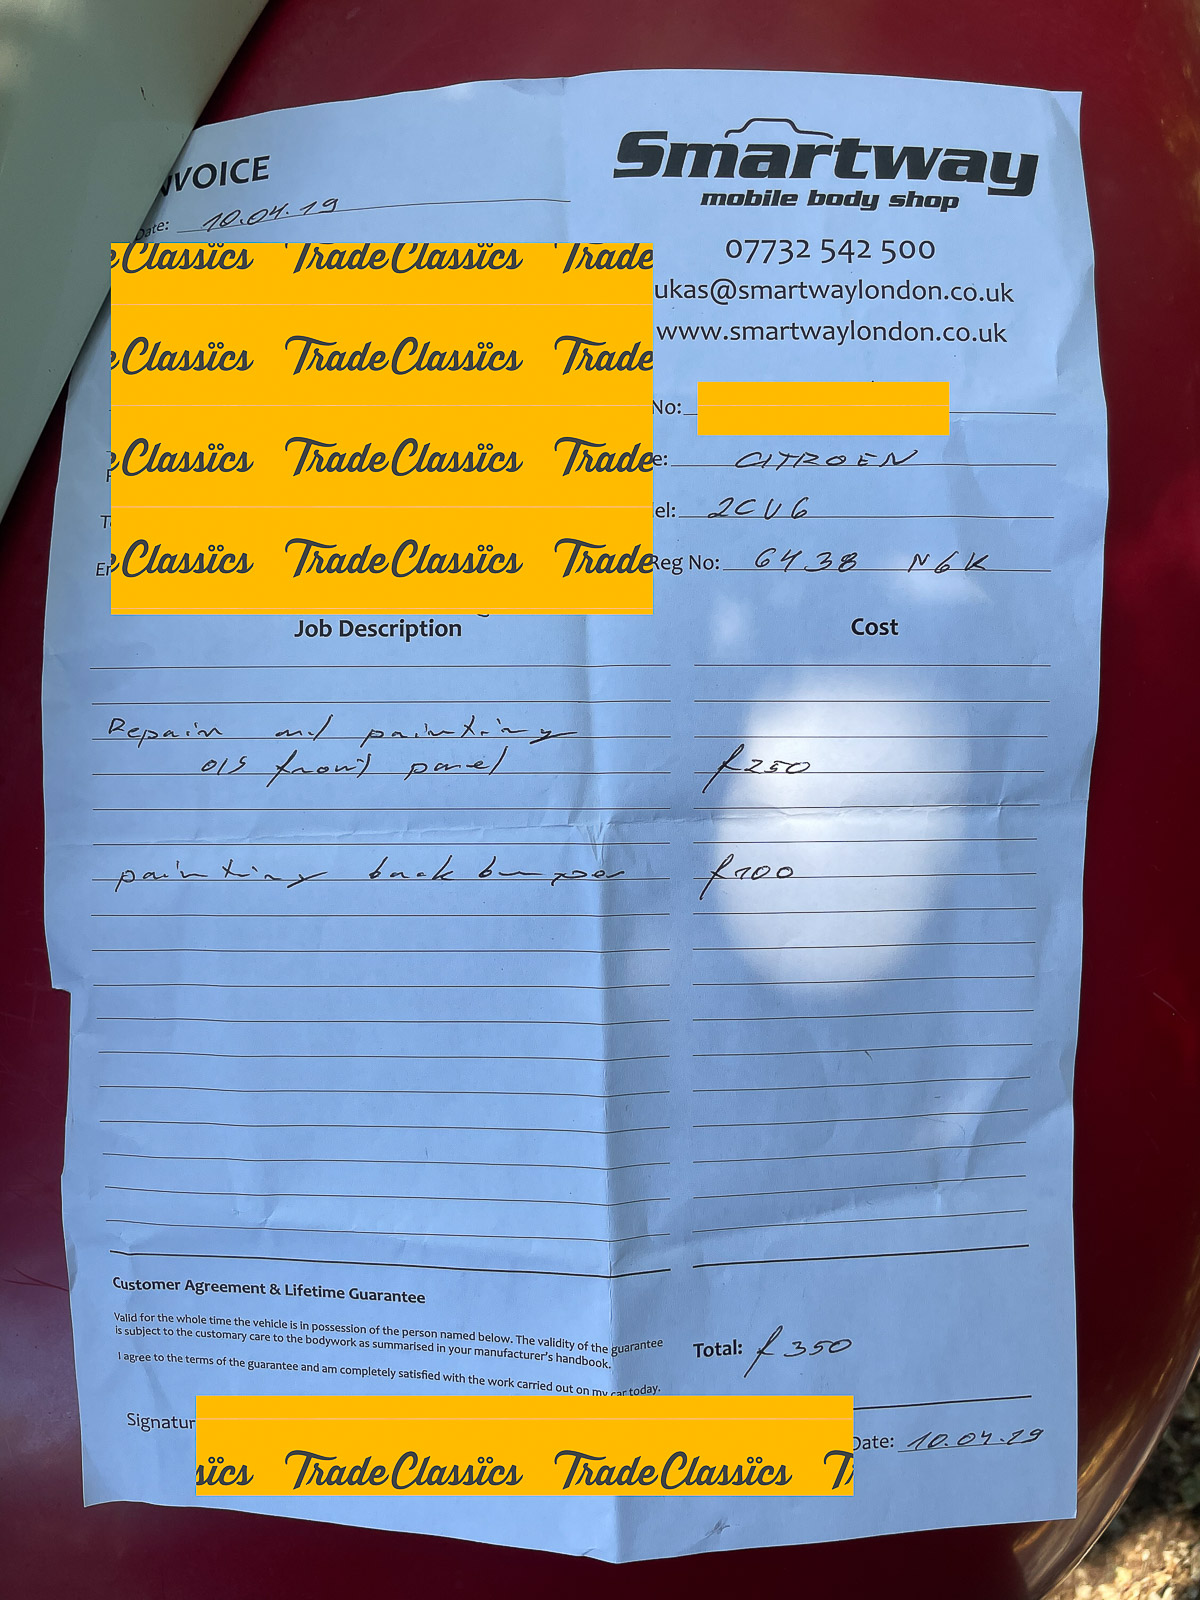 NVOICE
Date: 10.04.19
Smartway
mobile body shop
07732 542 500
ukas@smartwaylondon.co.uk
www.smartwaylondon.co.uk
e Classics Trade Classics Trade
e Classics Trade Classics Trade
e Classics Trade Classics Trade
e Classics Trade Classics Trade
No:
e: CITROEN
el: 2CV6
Reg No: 6438 N6K
Job Description Cost
Repair and painting
O/S front panel £250
painting back bumper £100
Customer Agreement & Lifetime Guarantee
Valid for the whole time the vehicle is in possession of the person named below. The validity of the guarantee
is subject to the customary care to the bodywork as summarised in your manufacturer's handbook.
I agree to the terms of the guarantee and am completely satisfied with the work carried out on my car today.
Total: £350
Signatur
Date: 10.04.19
sics Trade Classics Trade Classics T